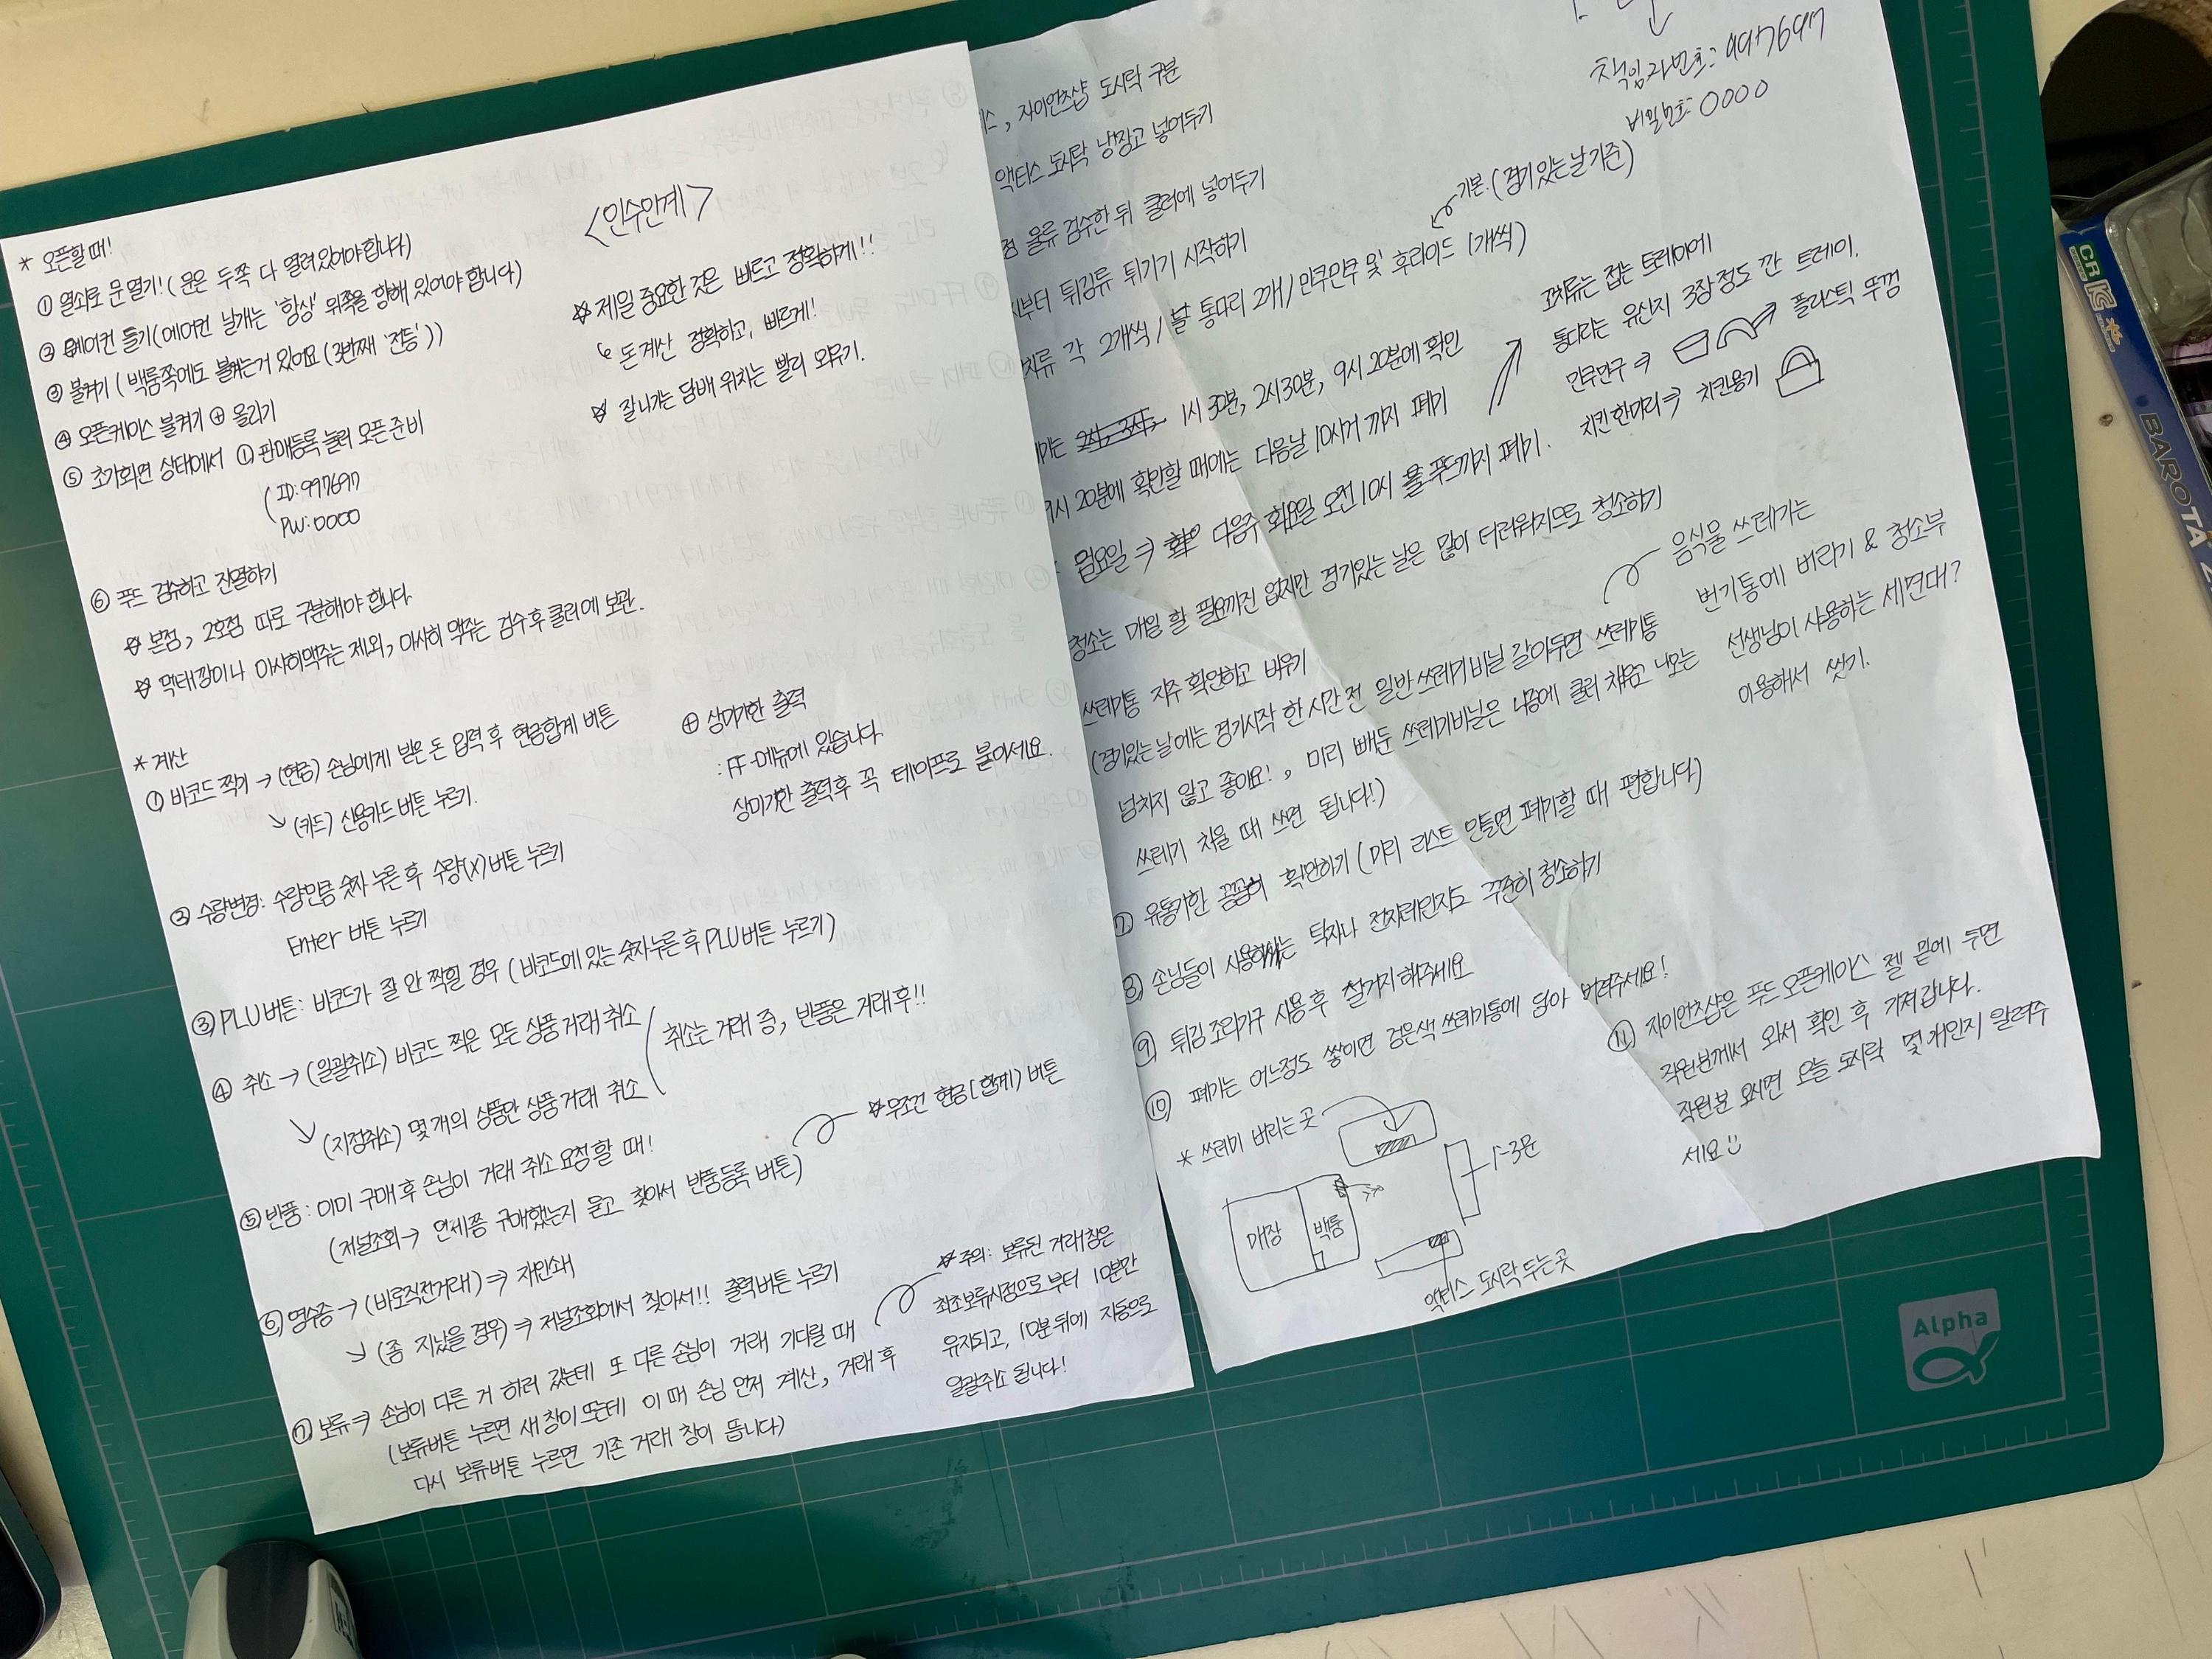 <인수인계>
* 오픈할 때!
① 열쇠로 문 열기! (문은 두쪽 다 열려있어야 합니다)
② 에어컨 틀기(에어컨 날개는 '항상' 위쪽을 향해 있어야 합니다)
③ 불켜기 (백룸쪽에도 불켜는거 있어요 (3번째 '전등'))
④ 오픈케이스 불켜기 ⊕ 올리기
⑤ 초기화면 상태에서 ① 판매등록 눌러 오픈 준비
(ID: 997697
PW: 0000
⑥ 푸드 검수하고 진열하기
☆ 본점, 2호점 따로 구분해야 합니다.
☆ 먹태깡이나 아사히맥주는 제외, 아사히 맥주는 검수 후 쿨러에 보관.
☆ 제일 중요한 것은 빠르고 정확하게!!
돈계산 정확하고, 빠르게!
☆ 잘나가는 담배 위치는 빨리 외우기.
* 계산
① 바코드 찍기 → (현금) 손님에게 받은 돈 입력 후 현금합계 버튼
↘ (카드) 신용카드 버튼 누르기.
⊕ 상미기한 출력
: FF-메뉴에 있습니다.
상미기한 출력 후 꼭 테이프로 붙이세요.
② 수량변경: 수량만큼 숫자 누른 후 수량(X) 버튼 누르기
Enter 버튼 누르기
③ PLU버튼: 바코드가 잘 안 찍힐 경우 (바코드에 있는 숫자 누른 후 PLU버튼 누르기)
④ 취소 → (일괄취소) 바코드 찍은 모든 상품 거래 취소
↘ (지정취소) 몇 개의 상품만 상품 거래 취소
취소는 거래 중, 반품은 거래 후!!
⑤ 반품: 이미 구매 후 손님이 거래 취소 요청할 때!
(저널조회 → 언제쯤 구매했는지 묻고 찾아서 반품등록 버튼)
☆무조건 현금(합계) 버튼
⑥ 영수증 → (바로직전거래) ⇒ 재인쇄
↘ (좀 지났을 경우) ⇒ 저널조회에서 찾아서!! 출력버튼 누르기
⑦ 보류 ⇒ 손님이 다른 거 하러 갔는데 또 다른 손님이 거래 기다릴 때
(보류버튼 누르면 새 창이 뜨는데 이 때 손님 먼저 계산, 거래 후
다시 보류버튼 누르면 기존 거래 창이 뜹니다)
☆주의: 보류된 거래창은
최초보류시점으로부터 10분간
유지되고, 10분 뒤에 자동으로
일괄취소 됩니다!
책임자번호: 997697
비밀번호: 0000
스, 자이언츠샵 도시락 구분
액티스 도시락 냉장고 넣어두기
점 물류 검수한 뒤 쿨러에 넣어두기
부터 튀김류 튀기기 시작하기
기본 (경기있는 날 기준)
치류 각 2개씩 / 통다리 2개 / 만쿠만쿠 및 후라이드 (개씩)
1시 30분, 2시 30분, 9시 20분에 확인
9시 20분에 확인할 때에는 다음날 10시거 까지 폐기
: 월요일 ⇒ 다음주 화요일 오전 10시 푸드까지 폐기.
꼬치류는 접는 트레이에
통다리는 유산지 3장 정도 깐 트레이.
만쿠만쿠 ⇒ 플라스틱 뚜껑
치킨 한마리 ⇒ 치킨용기
청소는 매일 할 필요까진 없지만 경기있는 날은 많이 더러워지므로 청소하기
쓰레기통 자주 확인하고 비우기
(경기있는 날에는 경기시작 한 시간 전 일반쓰레기 비닐 갈아두면 쓰레기통
넘치지 않고 좋아요!, 미리 빼둔 쓰레기비닐은 나중에 쿨러 채우고 나오는
쓰레기 치울 때 쓰면 됩니다!)
음식물 쓰레기는
변기통에 버리기 & 청소부
선생님이 사용하는 세면대?
이용해서 씻기.
⑦ 유통기한 꼼꼼히 확인하기 (미리 리스트 만들면 폐기할 때 편합니다)
⑧ 손님들이 사용하시는 탁자나 전자레인지도 꾸준히 청소하기
⑨ 튀김 조리기구 사용 후 설거지 해주세요
⑩ 폐기는 어느정도 쌓이면 검은색 쓰레기통에 담아 버려주세요!
* 쓰레기 버리는 곳
매장
백룸
1-3문
액티스 도시락 두는 곳
⑪ 자이언츠샵은 푸드 오픈케이스 젤 밑에 두면
직원분께서 와서 확인 후 가져갑니다.
직원분 오시면 오늘 도시락 몇 개인지 알려주
세요
Alpha
BAROTA